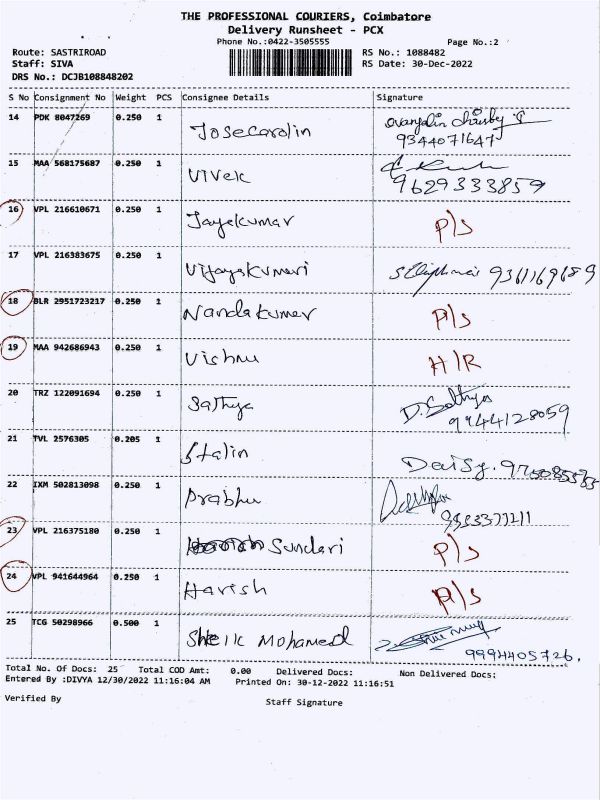 THE PROFESSIONAL COURIERS, Coimbatore
Delivery Runsheet - PCX
Phone No.:0422-3505555 Page No.:2
Route: SASTRIROAD RS No.: 1088482
Staff: SIVA RS Date: 30-Dec-2022
DRS No.: DCJB108848202
S No Consignment No Weight PCS Consignee Details Signature
14 PDK 8047269 0.250 1 Josecarolin
9344071647
15 MAA 568175687 0.250 1 Vivek
9629333859
16 VPL 216610671 0.250 1 Jayakumar P/S
17 VPL 216383675 0.250 1 Vijayakumari 9361169689
18 BLR 2951723217 0.250 1 Nandakumar P/S
19 MAA 942686943 0.250 1 Vishnu H/R
20 TRZ 122091694 0.250 1 Sathya D. Sathya
9944128059
21 TVL 2576305 0.205 1 Stalin Daisy.
22 IXM 502813098 0.250 1 Prabhu
23 VPL 216375180 0.250 1 Sundari P/S
24 VPL 941644964 0.250 1 Harish P/S
25 TCG 50298966 0.500 1 Sheik Mohamed
9994405726.
Total No. Of Docs: 25 Total COD Amt: 0.00 Delivered Docs: Non Delivered Docs:
Entered By :DIVYA 12/30/2022 11:16:04 AM Printed On: 30-12-2022 11:16:51
Verified By Staff Signature